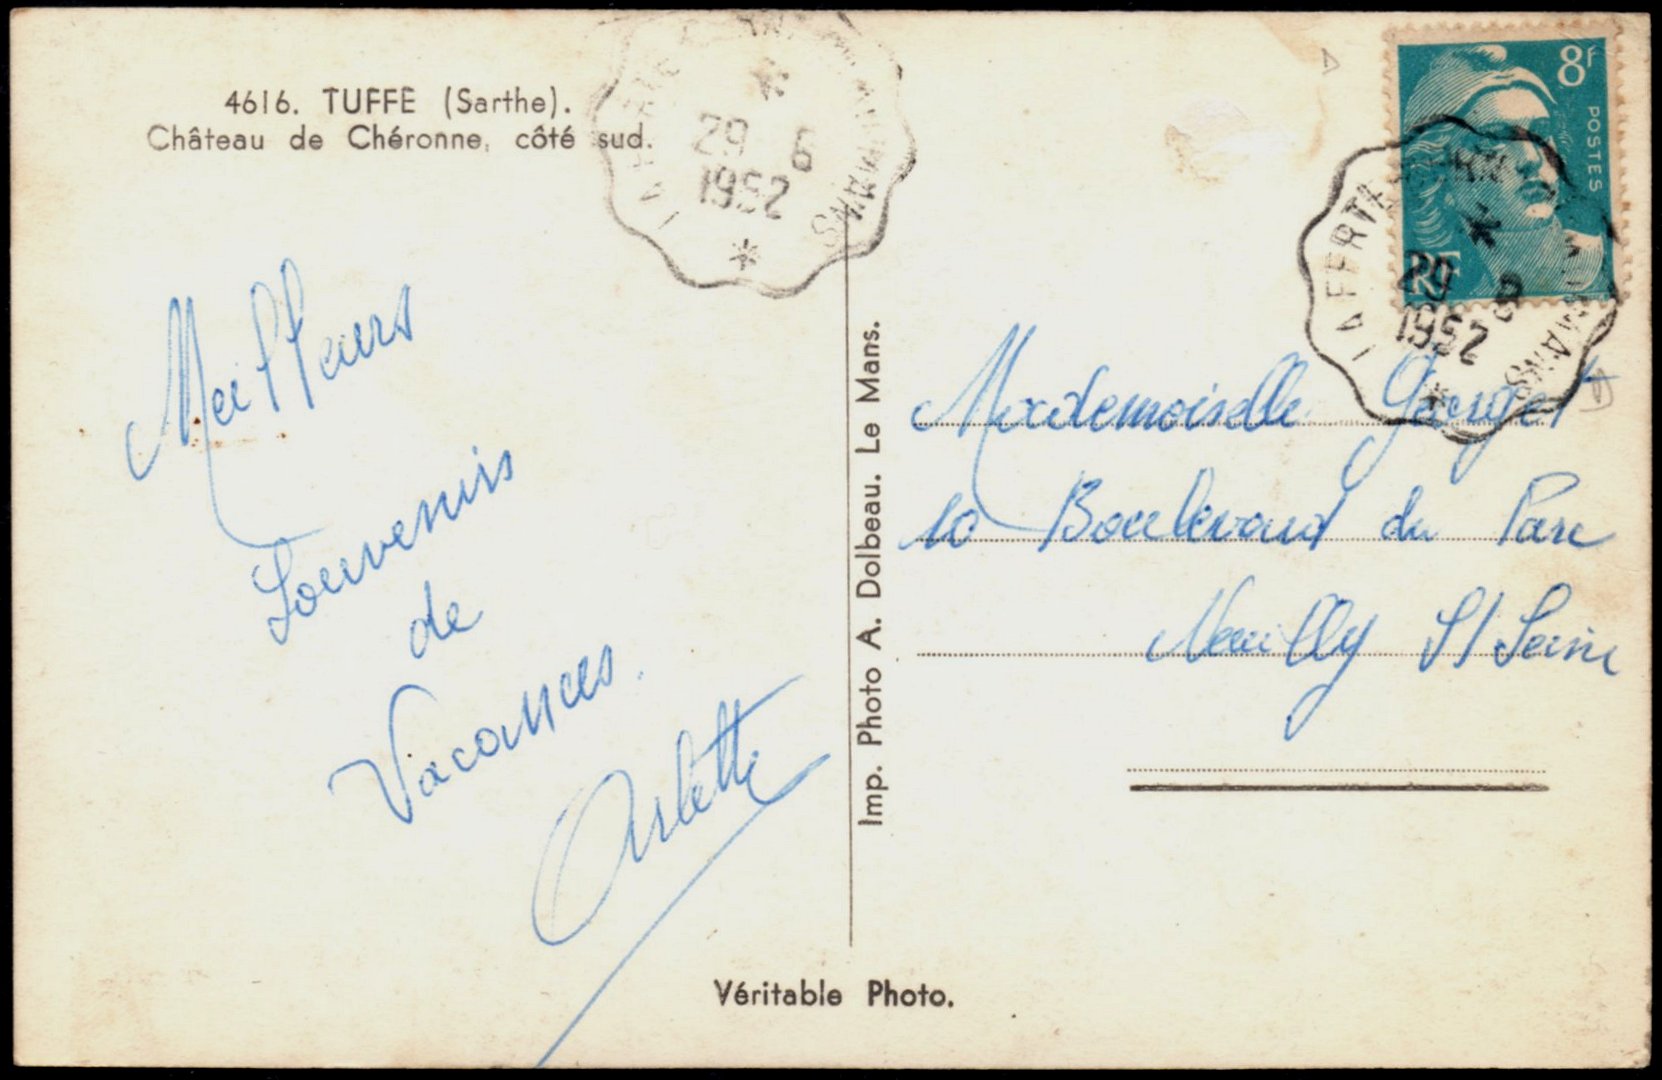 4616. TUFFE (Sarthe).
Château de Chéronne, côté sud.
29 6
1952
Meilleurs
Souvenirs
de
Vacances.
Arlette
Imp. Photo A. Dolbeau. Le Mans.
Véritable Photo.
8f
POSTES
RF
29 6
1952
Mademoiselle
10 Boulevard du Parc
Neuilly S/ Seine